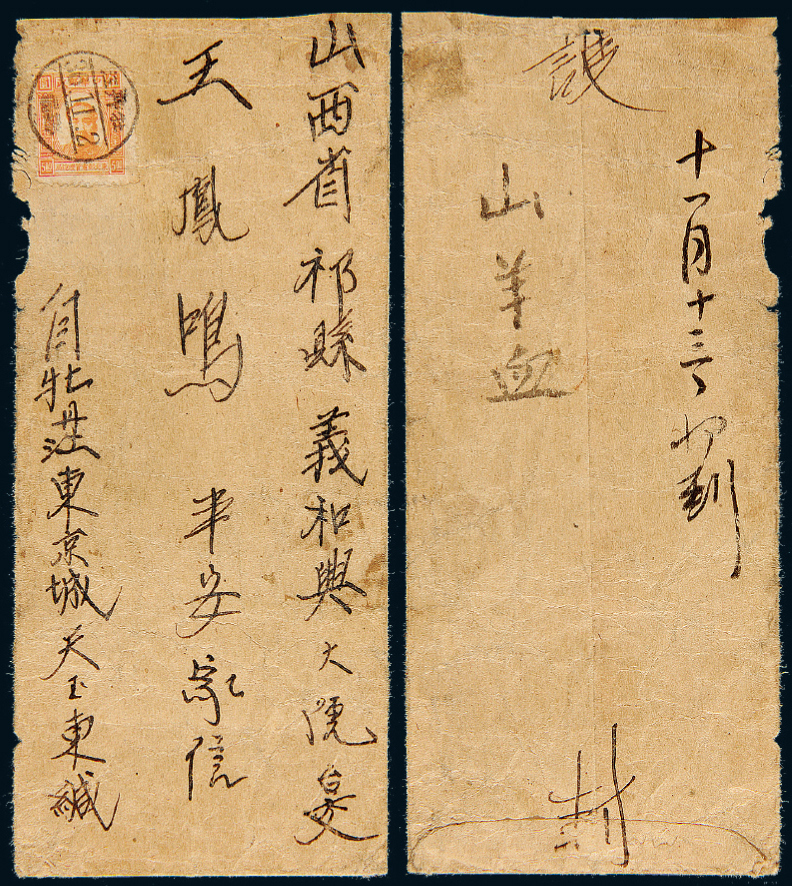 山西省祁縣義和興大院交
王鳳鳴
平安家信
自牡莊東京城天玉東緘
10.2
護
封
山羊血
十一月十三日 到